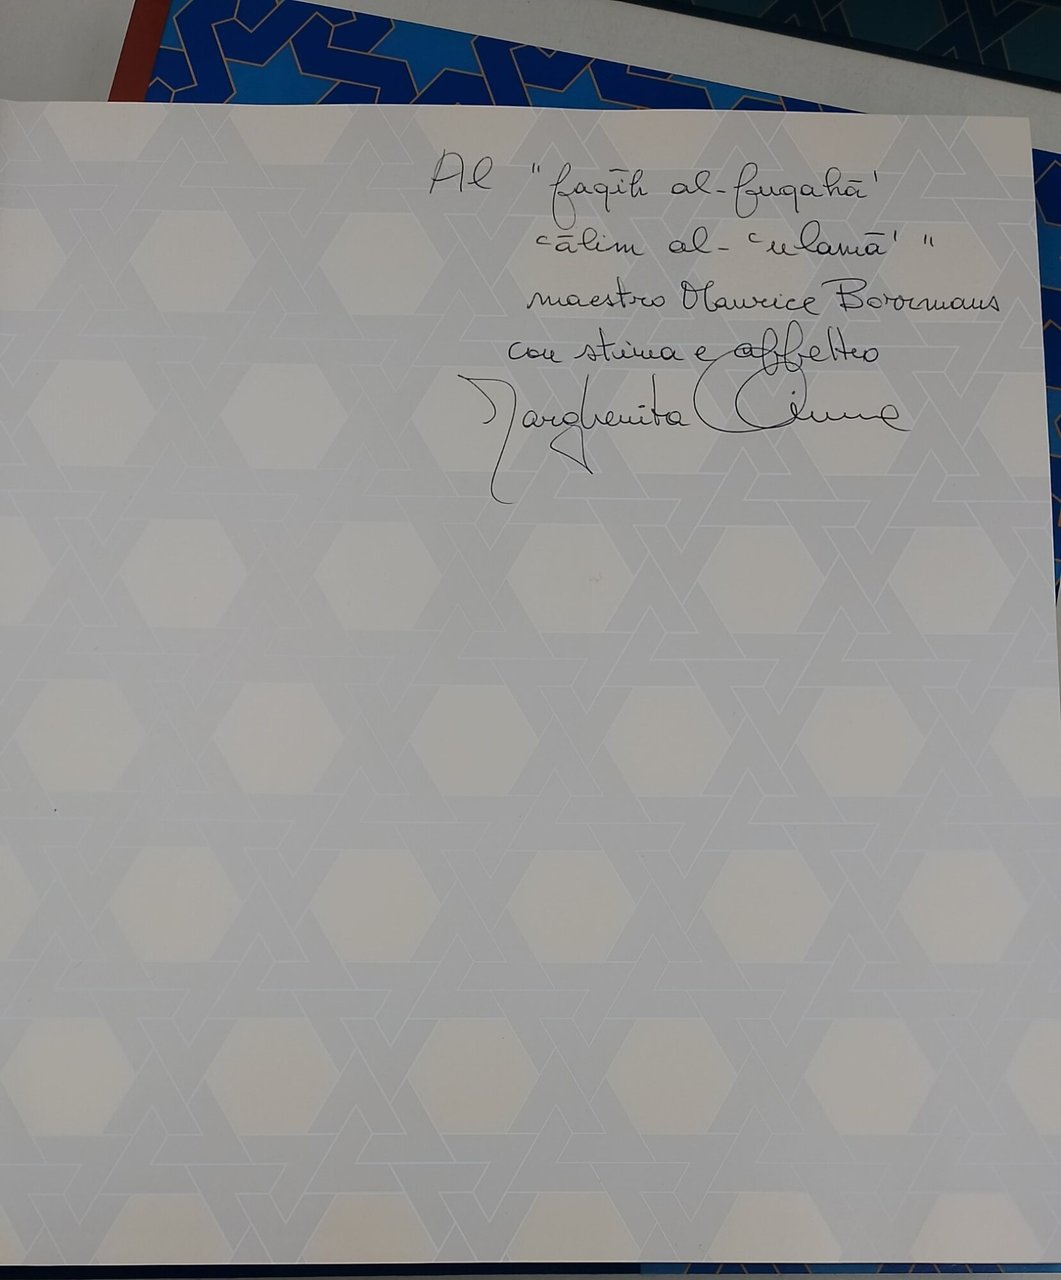 Al "faqīh al-fuqahā'
ᶜālim al-ᶜulamā' "
maestro Maurice Borrmans
con stima e affetto
Margherita